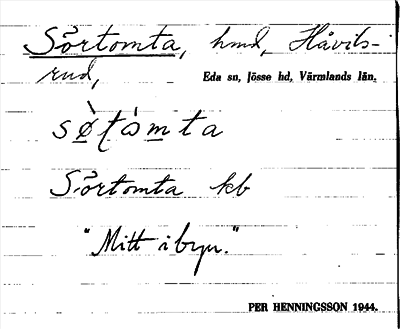 Sörtomta, hmd, Håvils-
rud,
Eda sn, Jösse hd, Värmlands län.
sø̀ʈòmta
Sörtomta kb
"Mitt i byn."
PER HENNINGSSON 1944.